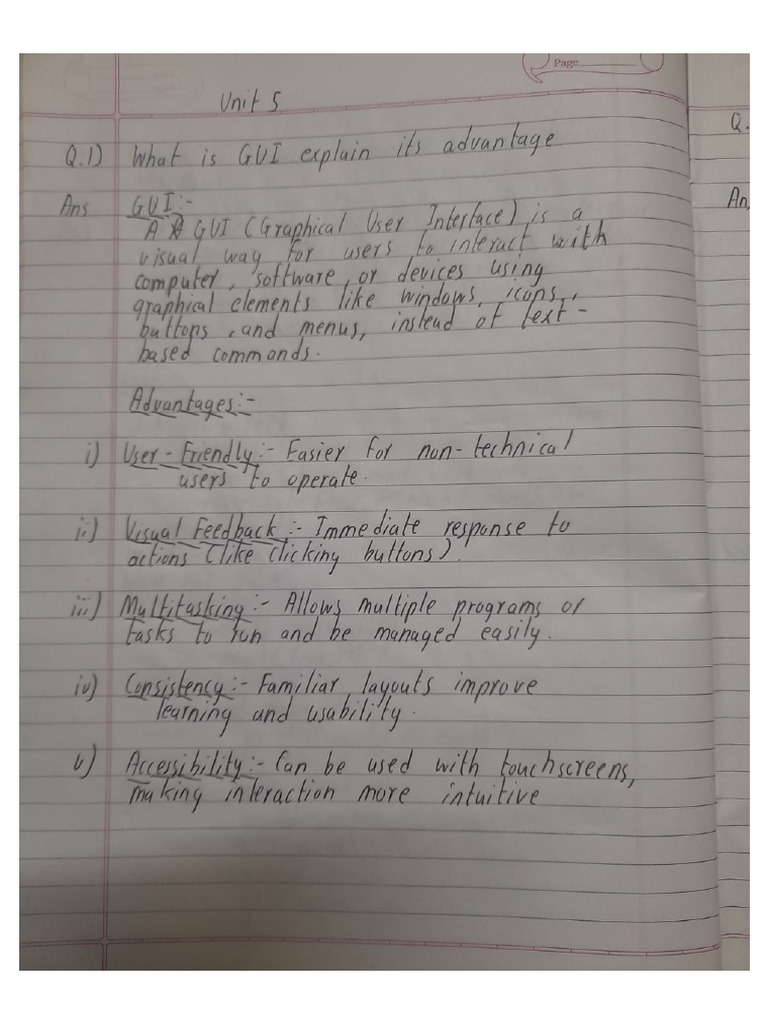 Page
Unit 5
Q.1) What is GUI explain its advantage
Ans GUI:-
A GUI (Graphical User Interface) is a
visual way for users to interact with
computer, software, or devices using
graphical elements like windows, icons,
buttons, and menus, instead of text-
based commands.
Advantages:-
i) User-Friendly:- Easier for non-technical
users to operate.
ii) Visual Feedback:- Immediate response to
actions (like clicking buttons).
iii) Multitasking:- Allows multiple programs or
tasks to run and be managed easily.
iv) Consistency:- Familiar layouts improve
learning and usability.
v) Accessibility:- Can be used with touchscreens,
making interaction more intuitive
Q.
An